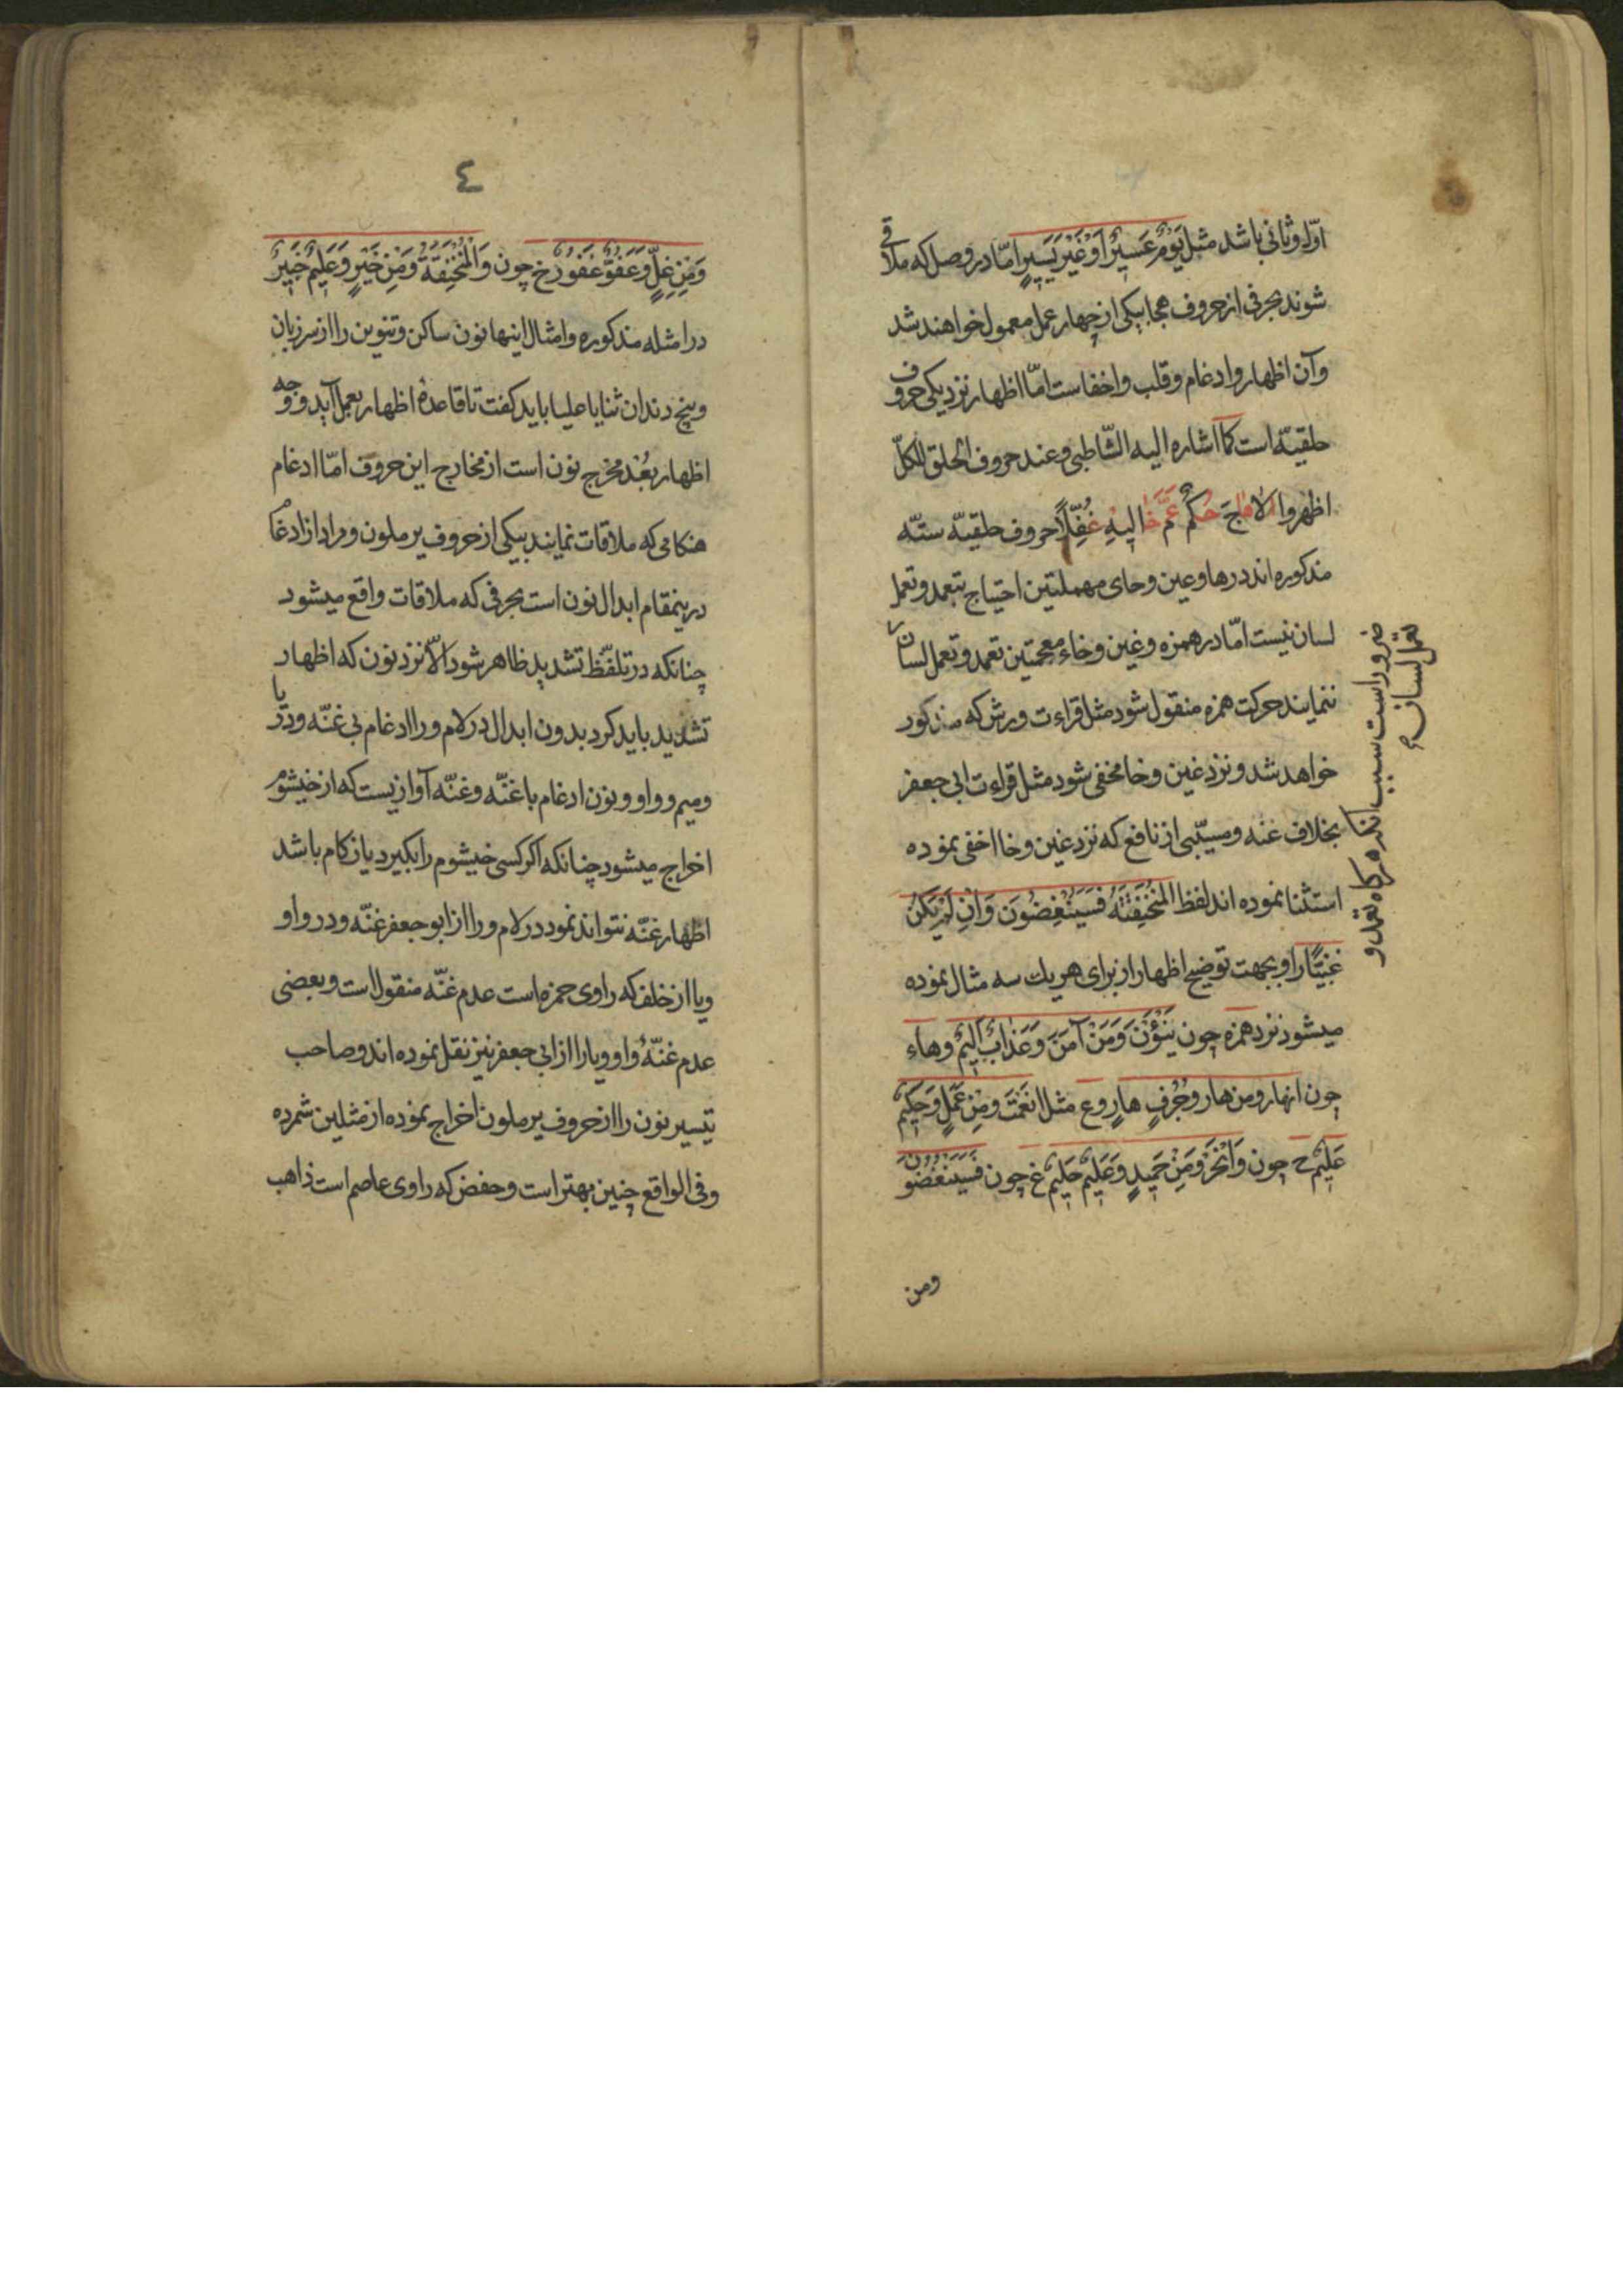 اوّل و ثانی باشد مثل يَوْمٌ عَسِيرٌ اَوْ غَيْرُ يَسِيرٍ امّا در وصل که ملاقی
شوند بحرفی از حروف هجا بیکی از چهار عمل معمول خواهند شد
وآن اظهار و ادغام و قلب و اخفاست امّا اظهار نزدیکی حروف
حلقیّه است کما اشاره الیه الشّاطبی وعند حروف الحلق للکلّ
اظهروا الا هاجَ حُكمٌ عَمَّ خا لیهِ غُفّلاً حروف حلقیّه ستّه
مذکوره اند درها وعین وحای مهملتین احتیاج بتعمد وتعمل
لسان نیست امّا در همزه وغین وخاء معجمتین تعمد وتعمل لسان
ننمایند حرکت همزه منقول شود مثل قراءت ورش که مذکور
خواهد شد ونزد غین وخا مخفی شود مثل قراءت ابی جعفر
بخلاف غنه ومسیّبی از نافع که نزد غین وخا اخفی نموده
استثنا نموده اند لفظ المنخنقة فسینغضون وَاِن لم یکن
غنیّاً را و بجهت توضیح اظهار از برای هریك سه مثال نموده
میشود نزد همزه چون یَنْؤَنَ وَمَنْ آمَنَ وَعَذابٌ اَلیمٌ وهاء
چون انهار ومن هار وجُرُفٍ هارٍ وع مثل انعَمْتَ ومِنْ عَمَلٍ وَحَکیمٌ
عَلیمٌ ح چون وَانْحَرْ ومِنْ حَمیدٍ وَعَلیمٌ حَلیمٌ غ چون فَسَیُنْغِضُونَ
ومن
ضرور است سبب انکه هرکاه تعمد و
تعمل لسان
٤
وَمِنْ غِلٍّ وَعَفُوٌّ غَفُورٌ خ چون وَالْمُنْخَنِقَةُ وَمِنْ خَیْرٍ وَعَلیمٌ خَبیرٌ
در امثله مذکوره وامثال اینها نون ساکن وتنوین را از سر زبان
وبیخ دندان ثنایا علیا باید کفت تا قاعدهٔ اظهار بعمل آید ووجه
اظهار بُعْد مخرج نون است از مخارج این حروف امّا ادغام
هنکامی که ملاقات نمایند بیکی از حروف یرملون ومراد از ادغام
درینمقام ابدال نون است بحرفی که ملاقات واقع میشود
چنانکه در تلفّظ تشدید ظاهر شود الّا نزد نون که اظهار
تشدید باید کرد بدون ابدال در لام ورا ادغام بی غنّه ودر یا
ومیم و واو و نون ادغام با غنّه وغنّه آوازیست که از خیشوم
اخراج میشود چنانکه اکر کسی خیشوم را بکیرد یا زکام باشد
اظهار غنّه نتواند نمود در لام ورا از ابو جعفر غنّه ودر واو
ویا از خلف که راوی حمزه است عدم غنّه منقول است وبعضی
عدم غنّهٔ واو ویا را از ابی جعفر نیز نقل نموده اند وصاحب
تیسیر نون را از حروف یرملون اخراج نموده از مثلین شمرده
وفی الواقع چنین بهتر است وحفص که راوی عاصم است ذاهب